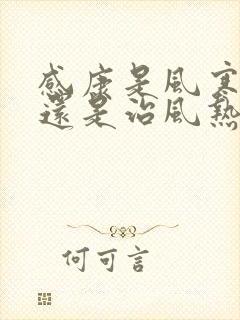 感康是風寒
還是治風熱
何可言